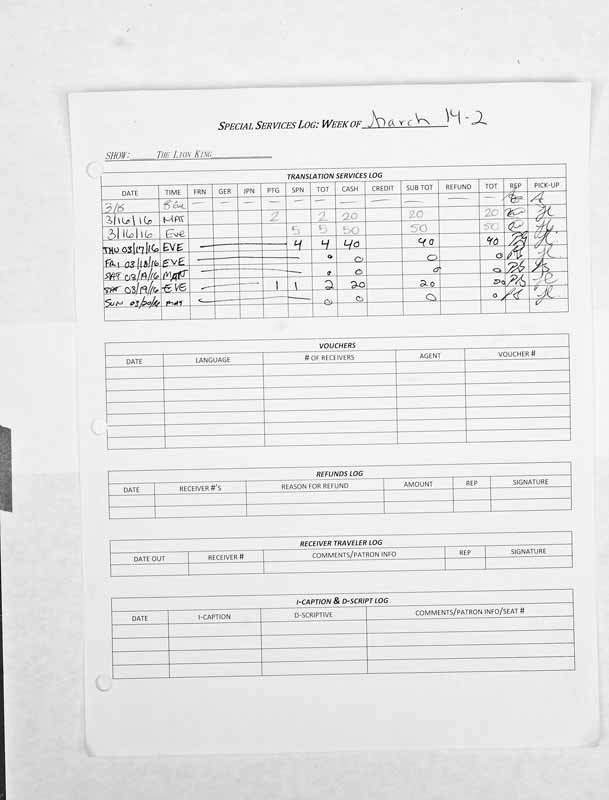 SPECIAL SERVICES LOG: WEEK OF March 14-2
SHOW: THE LION KING
TRANSLATION SERVICES LOG
DATE TIME FRN GER JPN PTG SPN TOT CASH CREDIT SUB TOT REFUND TOT REP PICK-UP
3/8 — — — — — — — — — — —
3/16/16 MAT 2 2 20 20 20
3/16/16 Eve 5 5 50 50 50
THU 03/17/16 EVE 4 4 40 40 40
FRI 03/18/16 EVE 0 0 0 0
SAT 03/19/16 MAT 0 0 0 0
SAT 03/19/16 EVE 1 1 2 20 20
SUN 03/20/16 MAT 0 0 0 0
VOUCHERS
DATE LANGUAGE # OF RECEIVERS AGENT VOUCHER #
REFUNDS LOG
DATE RECEIVER #'S REASON FOR REFUND AMOUNT REP SIGNATURE
RECEIVER TRAVELER LOG
DATE OUT RECEIVER # COMMENTS/PATRON INFO REP SIGNATURE
I-CAPTION & D-SCRIPT LOG
DATE I-CAPTION D-SCRIPTIVE COMMENTS/PATRON INFO/SEAT #